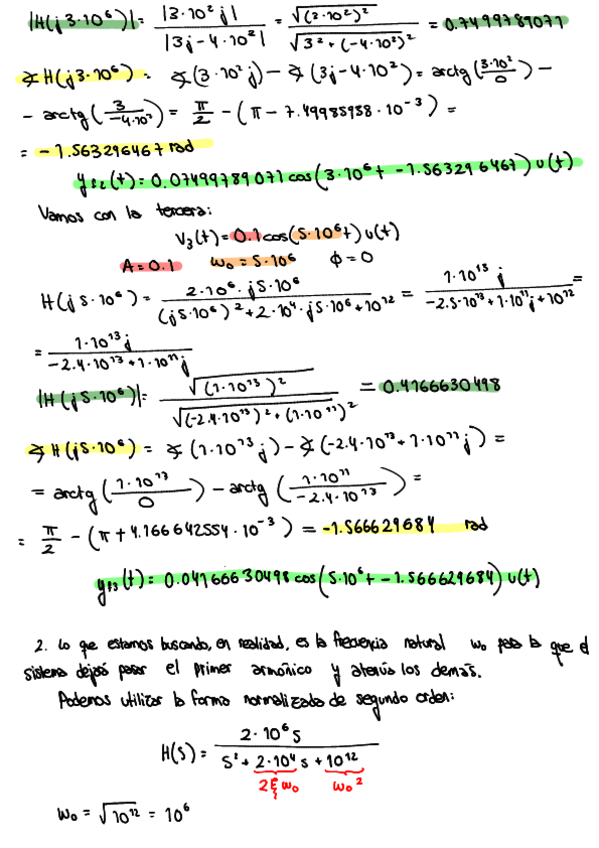 |H(j3·10⁶)| = |3·10² j| / |3j-4·10²| = √(3·10²)² / √3²+(-4·10²)² = 0.7499789071
∢ H(j3·10⁶) = ∢(3·10² j) - ∢(3j-4·10²) = arctg(3·10²/0) -
- arctg(3/-4·10²) = π/2 - (π - 7.49985938·10⁻³) =
= -1.563296467 rad
yf2(t) = 0.07499789071 cos(3·10⁶t - 1.563296467) u(t)
Vamos con la tercera:
V₃(t) = 0.1 cos(5·10⁶t) u(t)
A = 0.1 ω₀ = 5·10⁶ ϕ = 0
H(j5·10⁶) = 2·10⁶·j5·10⁶ / (j5·10⁶)² + 2·10⁴·j5·10⁶ + 10¹² = 1·10¹³ j / -2.5·10¹³ + 1·10¹¹ j + 10¹² =
= 1·10¹³ j / -2.4·10¹³ + 1·10¹¹ j
|H(j5·10⁶)| = √(1·10¹³)² / √(-2.4·10¹³)² + (1·10¹¹)² = 0.4166630498
∢ H(j5·10⁶) = ∢(1·10¹³ j) - ∢(-2.4·10¹³ + 1·10¹¹ j) =
= arctg(1·10¹³/0) - arctg(1·10¹¹/-2.4·10¹³) =
= π/2 - (π + 4.166642554·10⁻³) = -1.566629684 rad
yf3(t) = 0.04166630498 cos(5·10⁶t - 1.566629684) u(t)
2. Lo que estamos buscando, en realidad, es la frecuencia natural ω₀ para la que el
sistema dejará pasar el primer armónico y atenúa los demás.
Podemos utilizar la forma normalizada de segundo orden:
H(s) = 2·10⁶ s / s² + 2·10⁴ s + 10¹²
2ξω₀ ω₀²
ω₀ = √10¹² = 10⁶